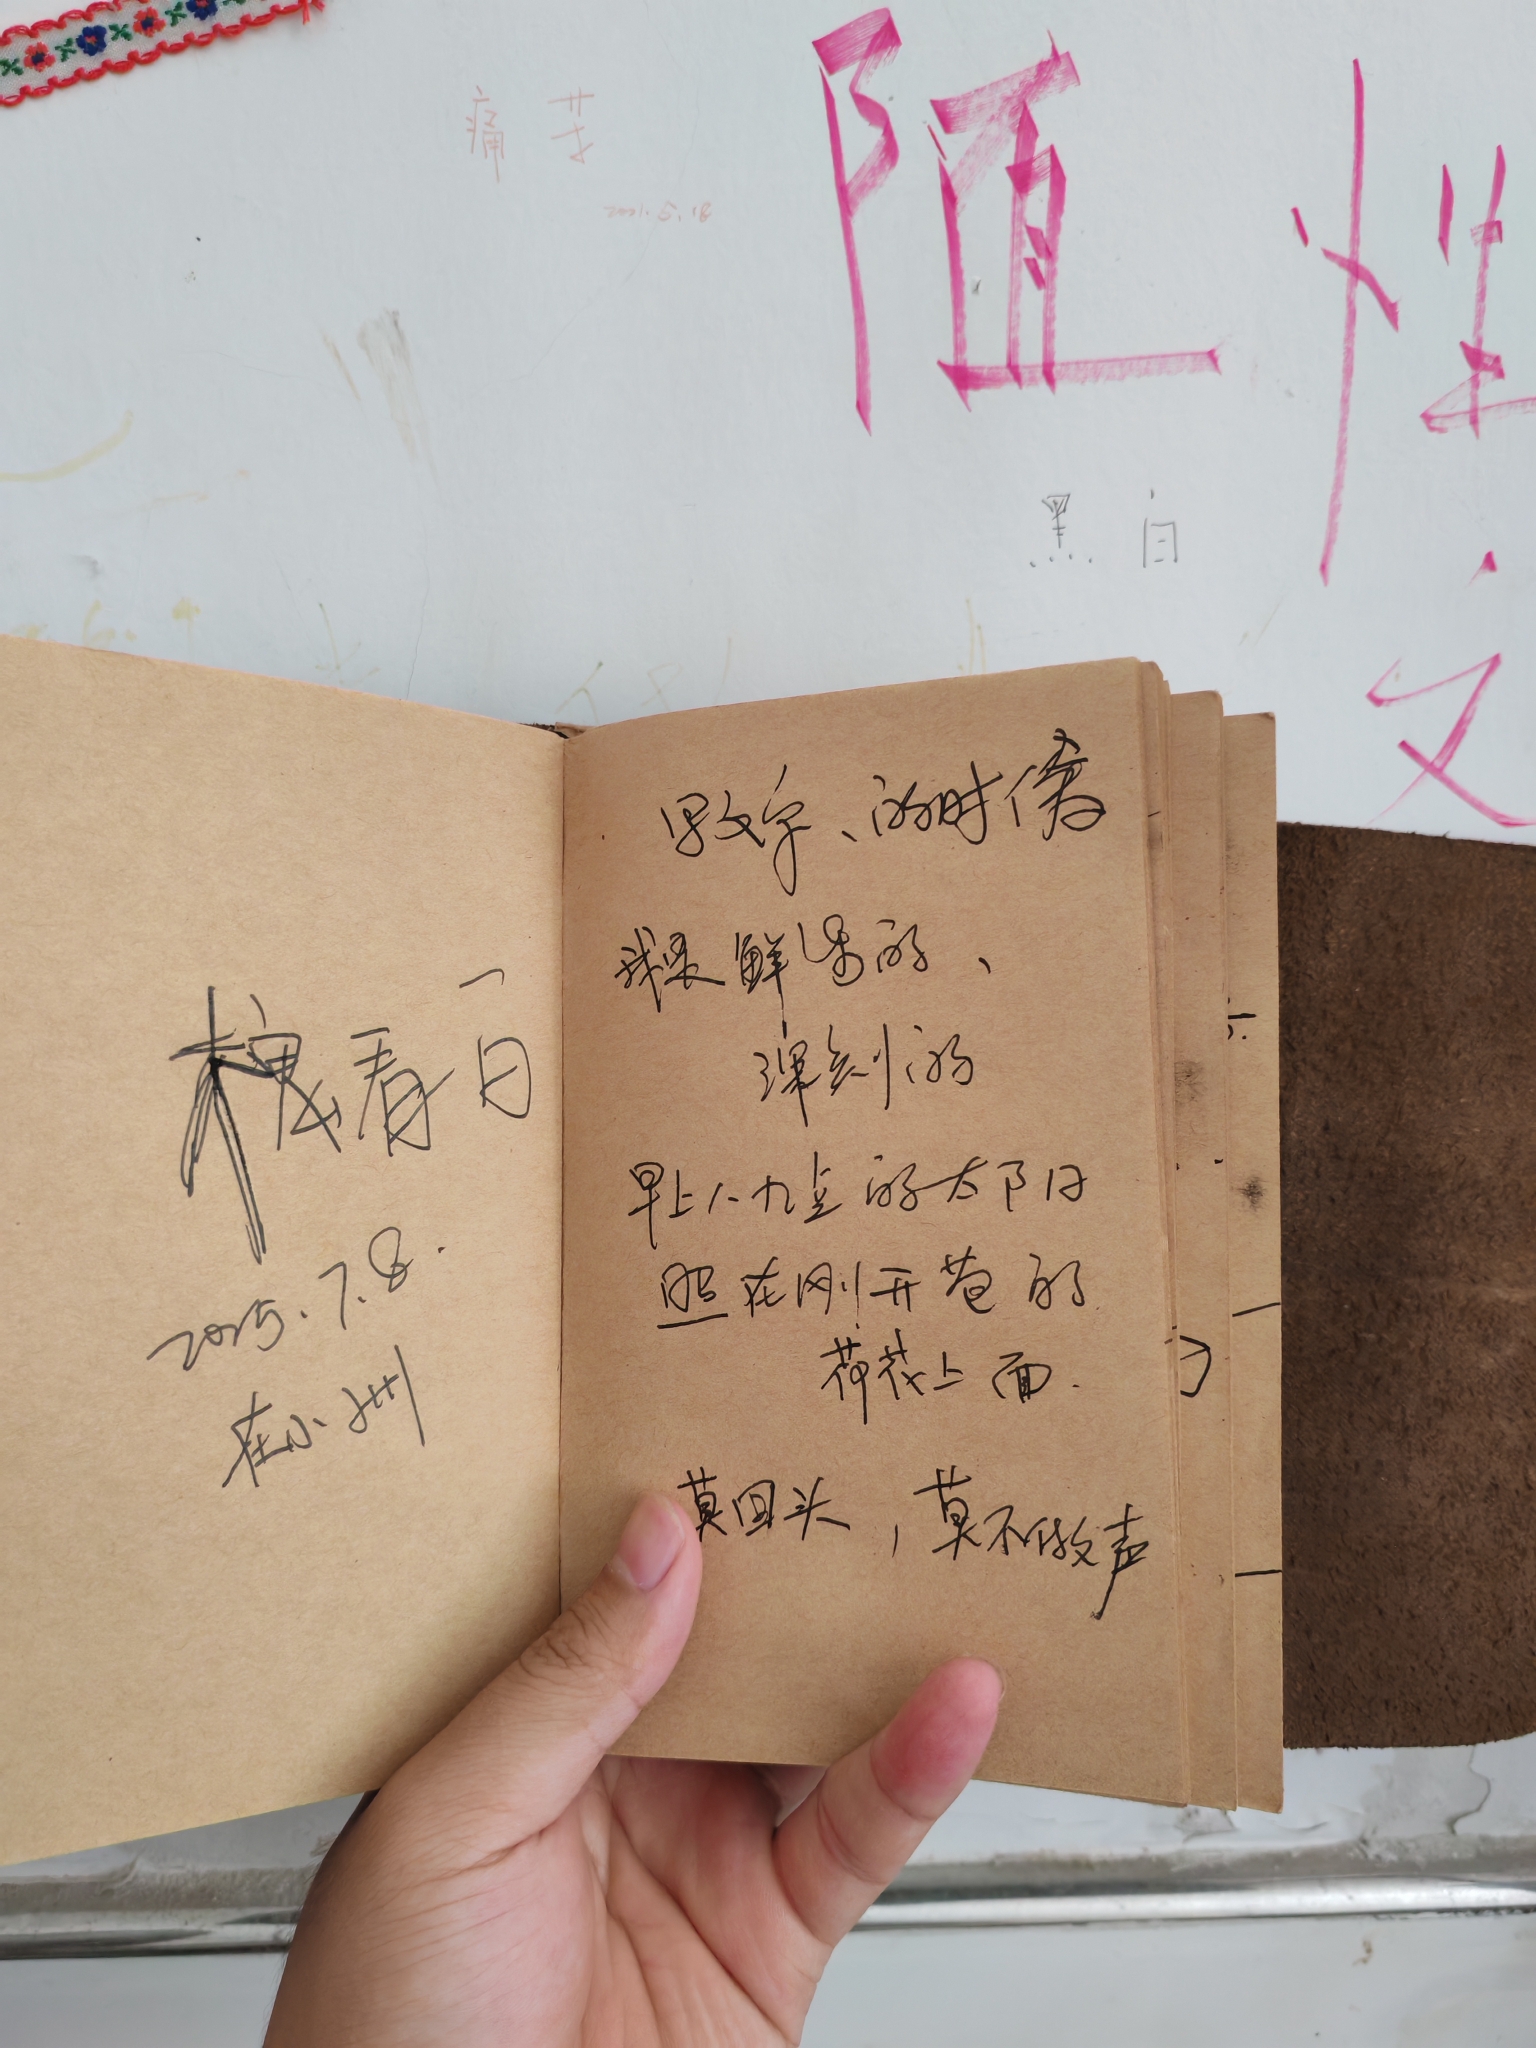 痛苦
2021.5.18
随性
黑白
文
槐春一日
2025.7.8.
在小洲
写文字、的时候
我是鲜活的、
深刻的
早上八九点的太阳
照在刚开苞的
荷花上面.
莫回头，莫不做声